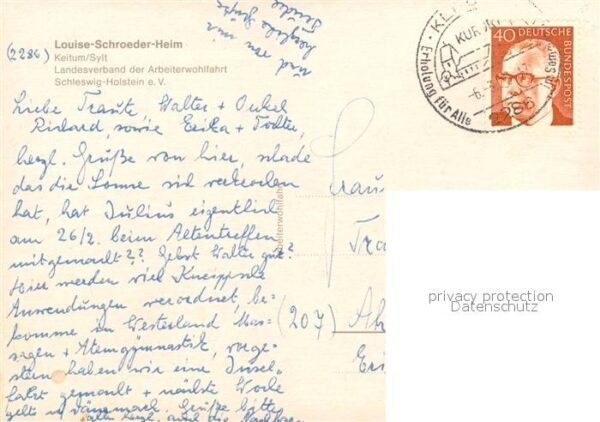 (2286)
Louise-Schroeder-Heim
Keitum/Sylt
Landesverband der Arbeiterwohlfahrt
Schleswig-Holstein e. V.
Liebe Traute, Walter + Onkel
Richard, sowie Erika + Tochter,
herzl. Grüße von hier, schade
das die Sonne sich verkrochen
hat, hat Julius eigentlich
am 26/2. beim Altentreffen
mitgemacht?? Gehts Walter gut?
Hier werden viel Kneippsche
Anwendungen verordnet, be-
komme in Westerland Mas-
sagen + Atemgymnastik, vorge-
stern haben wir eine Insel-
fahrt gemacht + nächste Woche
gehts in Dänemark. Grüße bitte
alle herzl. auch die
und von mir
herzliche Grüße
KURORT
Erholung für Alle
2286
40 DEUTSCHE
BUNDESPOST
Frau
Tra
(207) Ah
Eri
privacy protection
Datenschutz